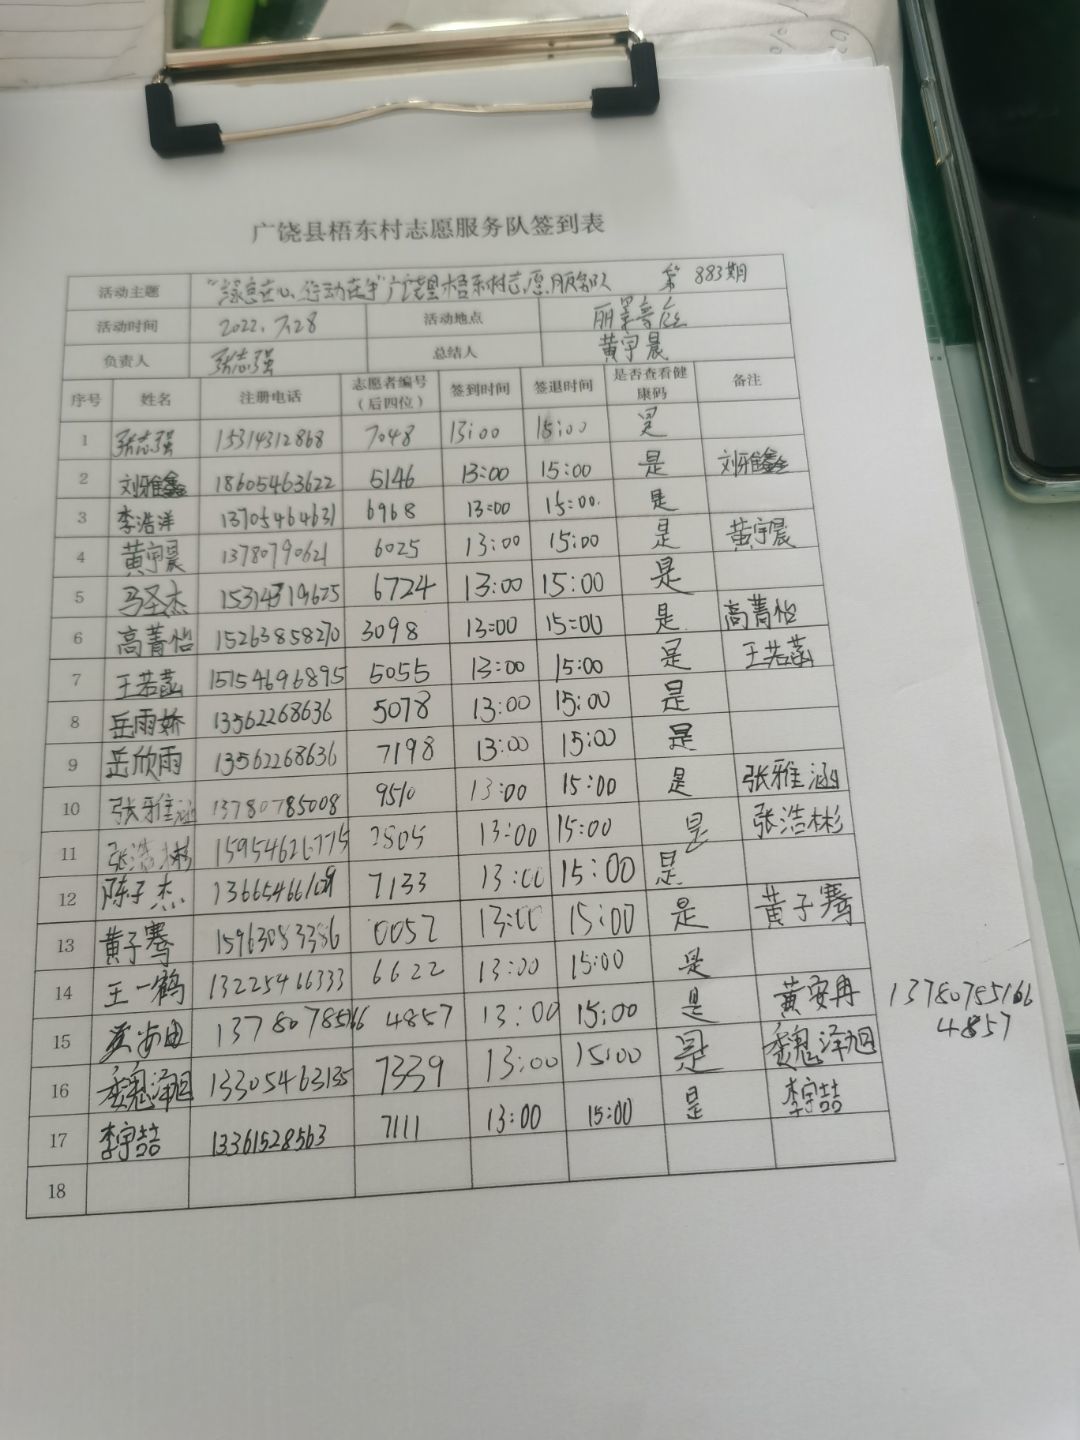 广饶县梧东村志愿服务队签到表
活动主题 "绿意在心、行动在手"广饶县梧东村志愿服务队 第883期
活动时间 2022.7.28 活动地点 丽景
负责人 张志强 总结人 黄宇晨
序号 姓名 注册电话 志愿者编号（后四位） 签到时间 签退时间 是否查看健康码 备注
1 张志强 15314312868 7048 13:00 15:00 是
2 刘雅鑫 18605463622 5146 13:00 15:00 是 刘雅鑫
3 李浩洋 13705464631 6968 13:00 15:00. 是
4 黄宇晨 13780790621 6025 13:00 15:00 是 黄宇晨
5 马圣杰 6724 13:00 15:00 是
6 高菁怡 15263858270 3098 13:00 15:00 是 高菁怡
7 王若菡 15154696895 5055 13:00 15:00 是 王若菡
8 岳雨娇 13562268636 5078 13:00 15:00 是
9 岳欣雨 13562268636 7198 13:00 15:00 是
10 张雅涵 13780785008 9510 13:00 15:00 是 张雅涵
11 张浩彬 13:00 15:00 是 张浩彬
12 陈子杰 7133 13:00 15:00 是
13 黄子骞 15963083386 0052 13:00 15:00 是 黄子骞
14 王一鹤 13225466333 6622 13:00 15:00 是
15 13780785166 4857 13:00 15:00 是 黄安冉 13780785166
4857
16 魏泽旭 13305463135 7339 13:00 15:00 是 魏泽旭
17 李宇喆 13361528563 7111 13:00 15:00 是 李宇喆
18